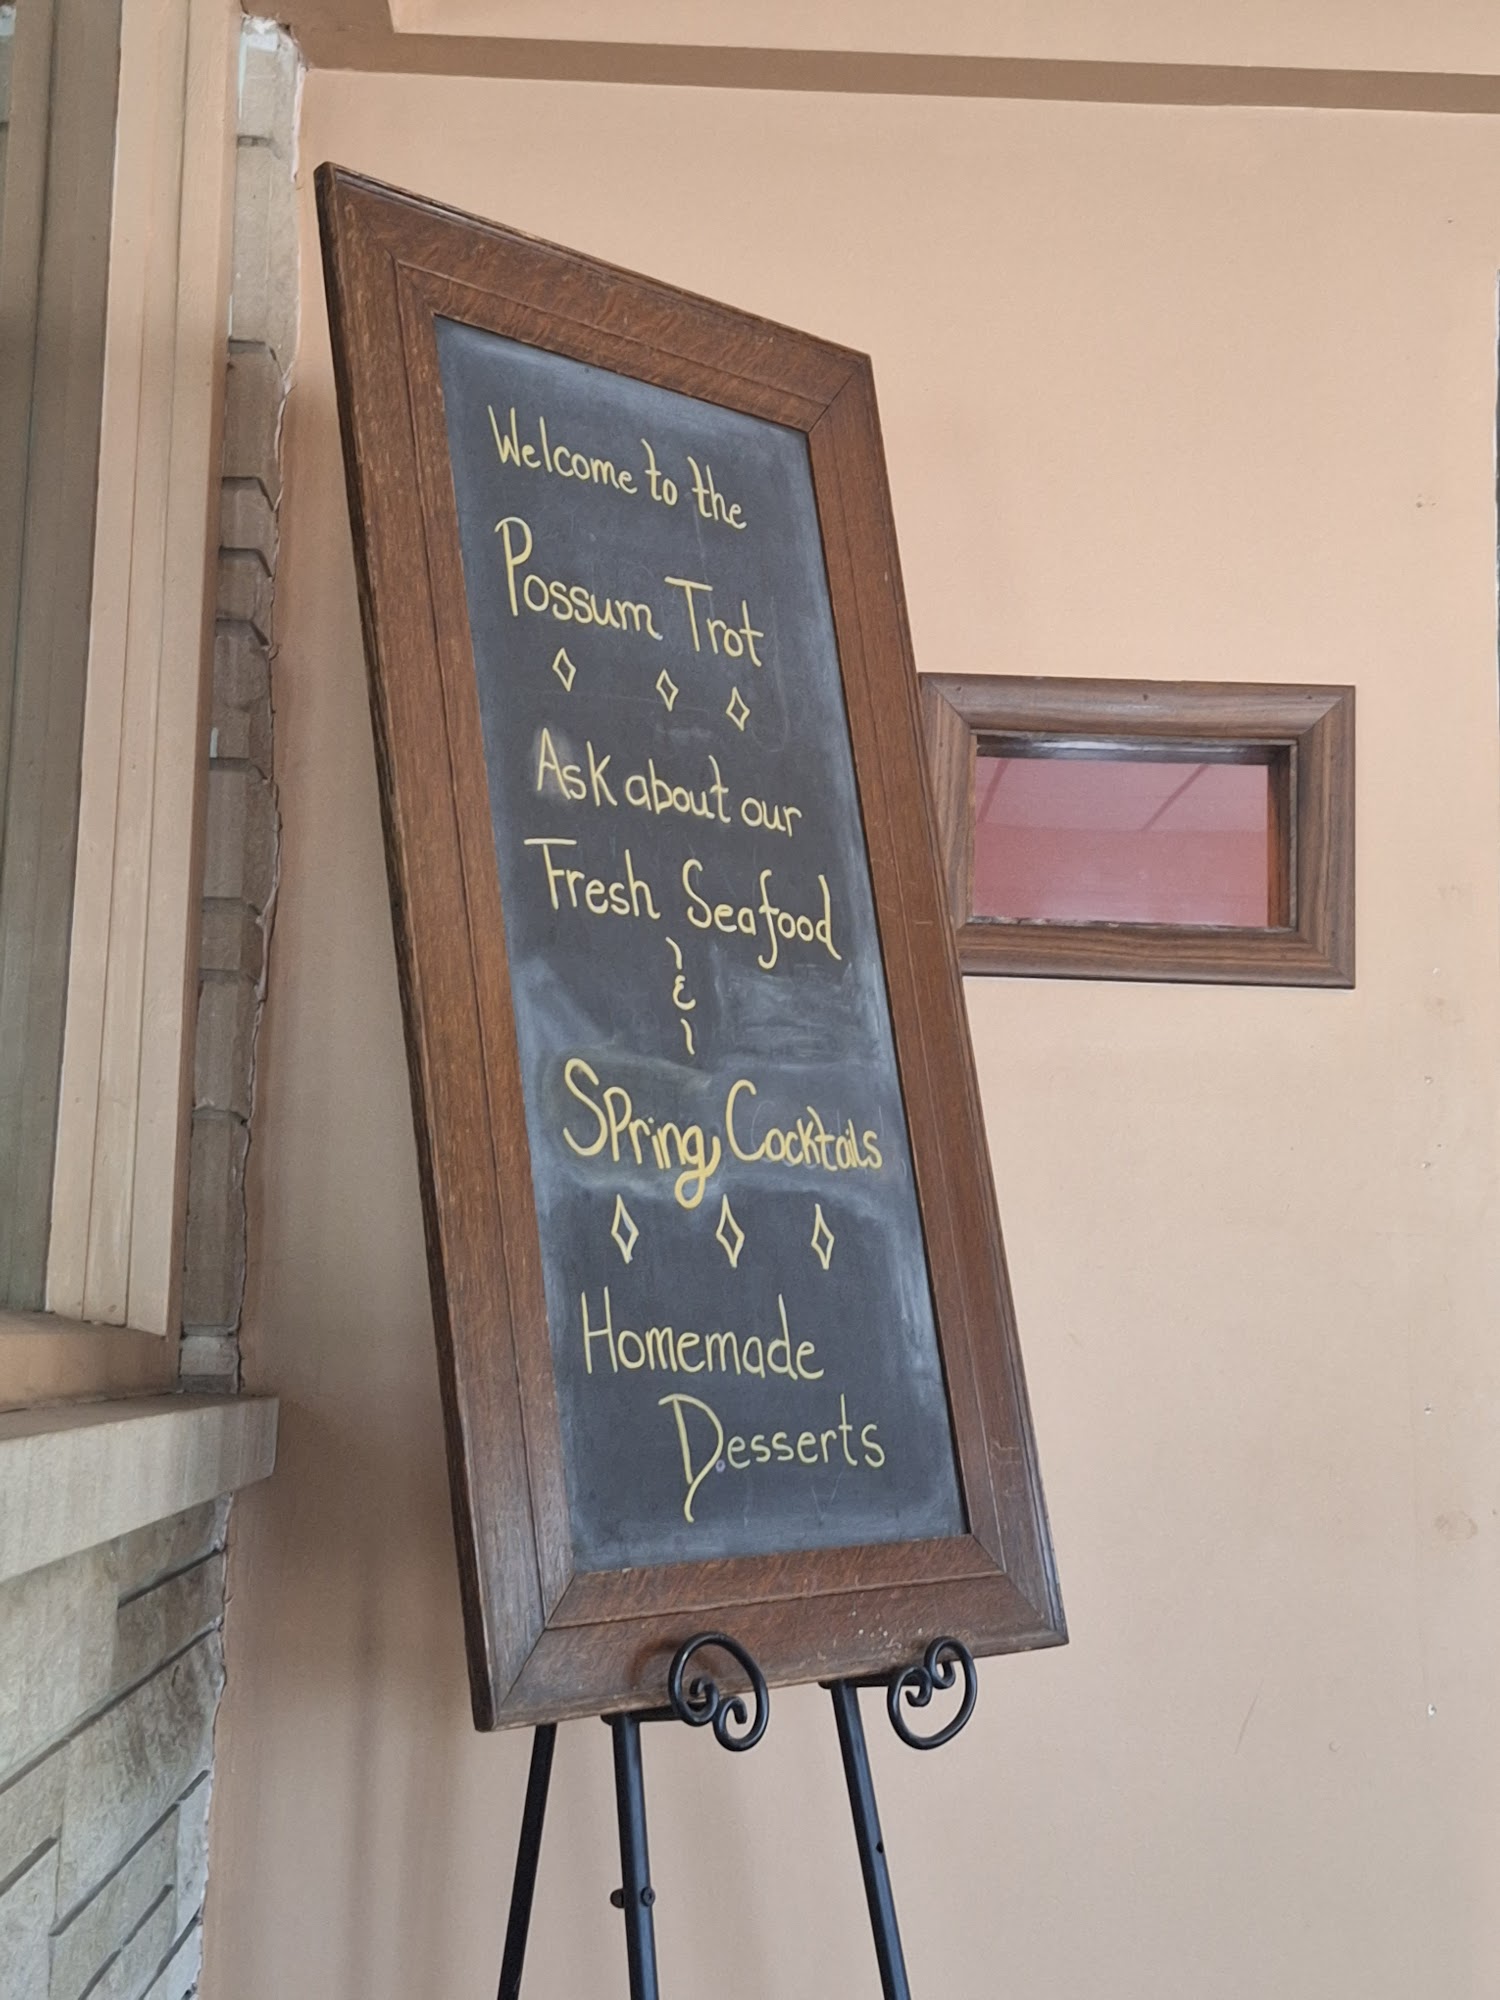 Welcome to the
Possum Trot
Ask about our
Fresh Seafood
&
Spring Cocktails
Homemade
Desserts